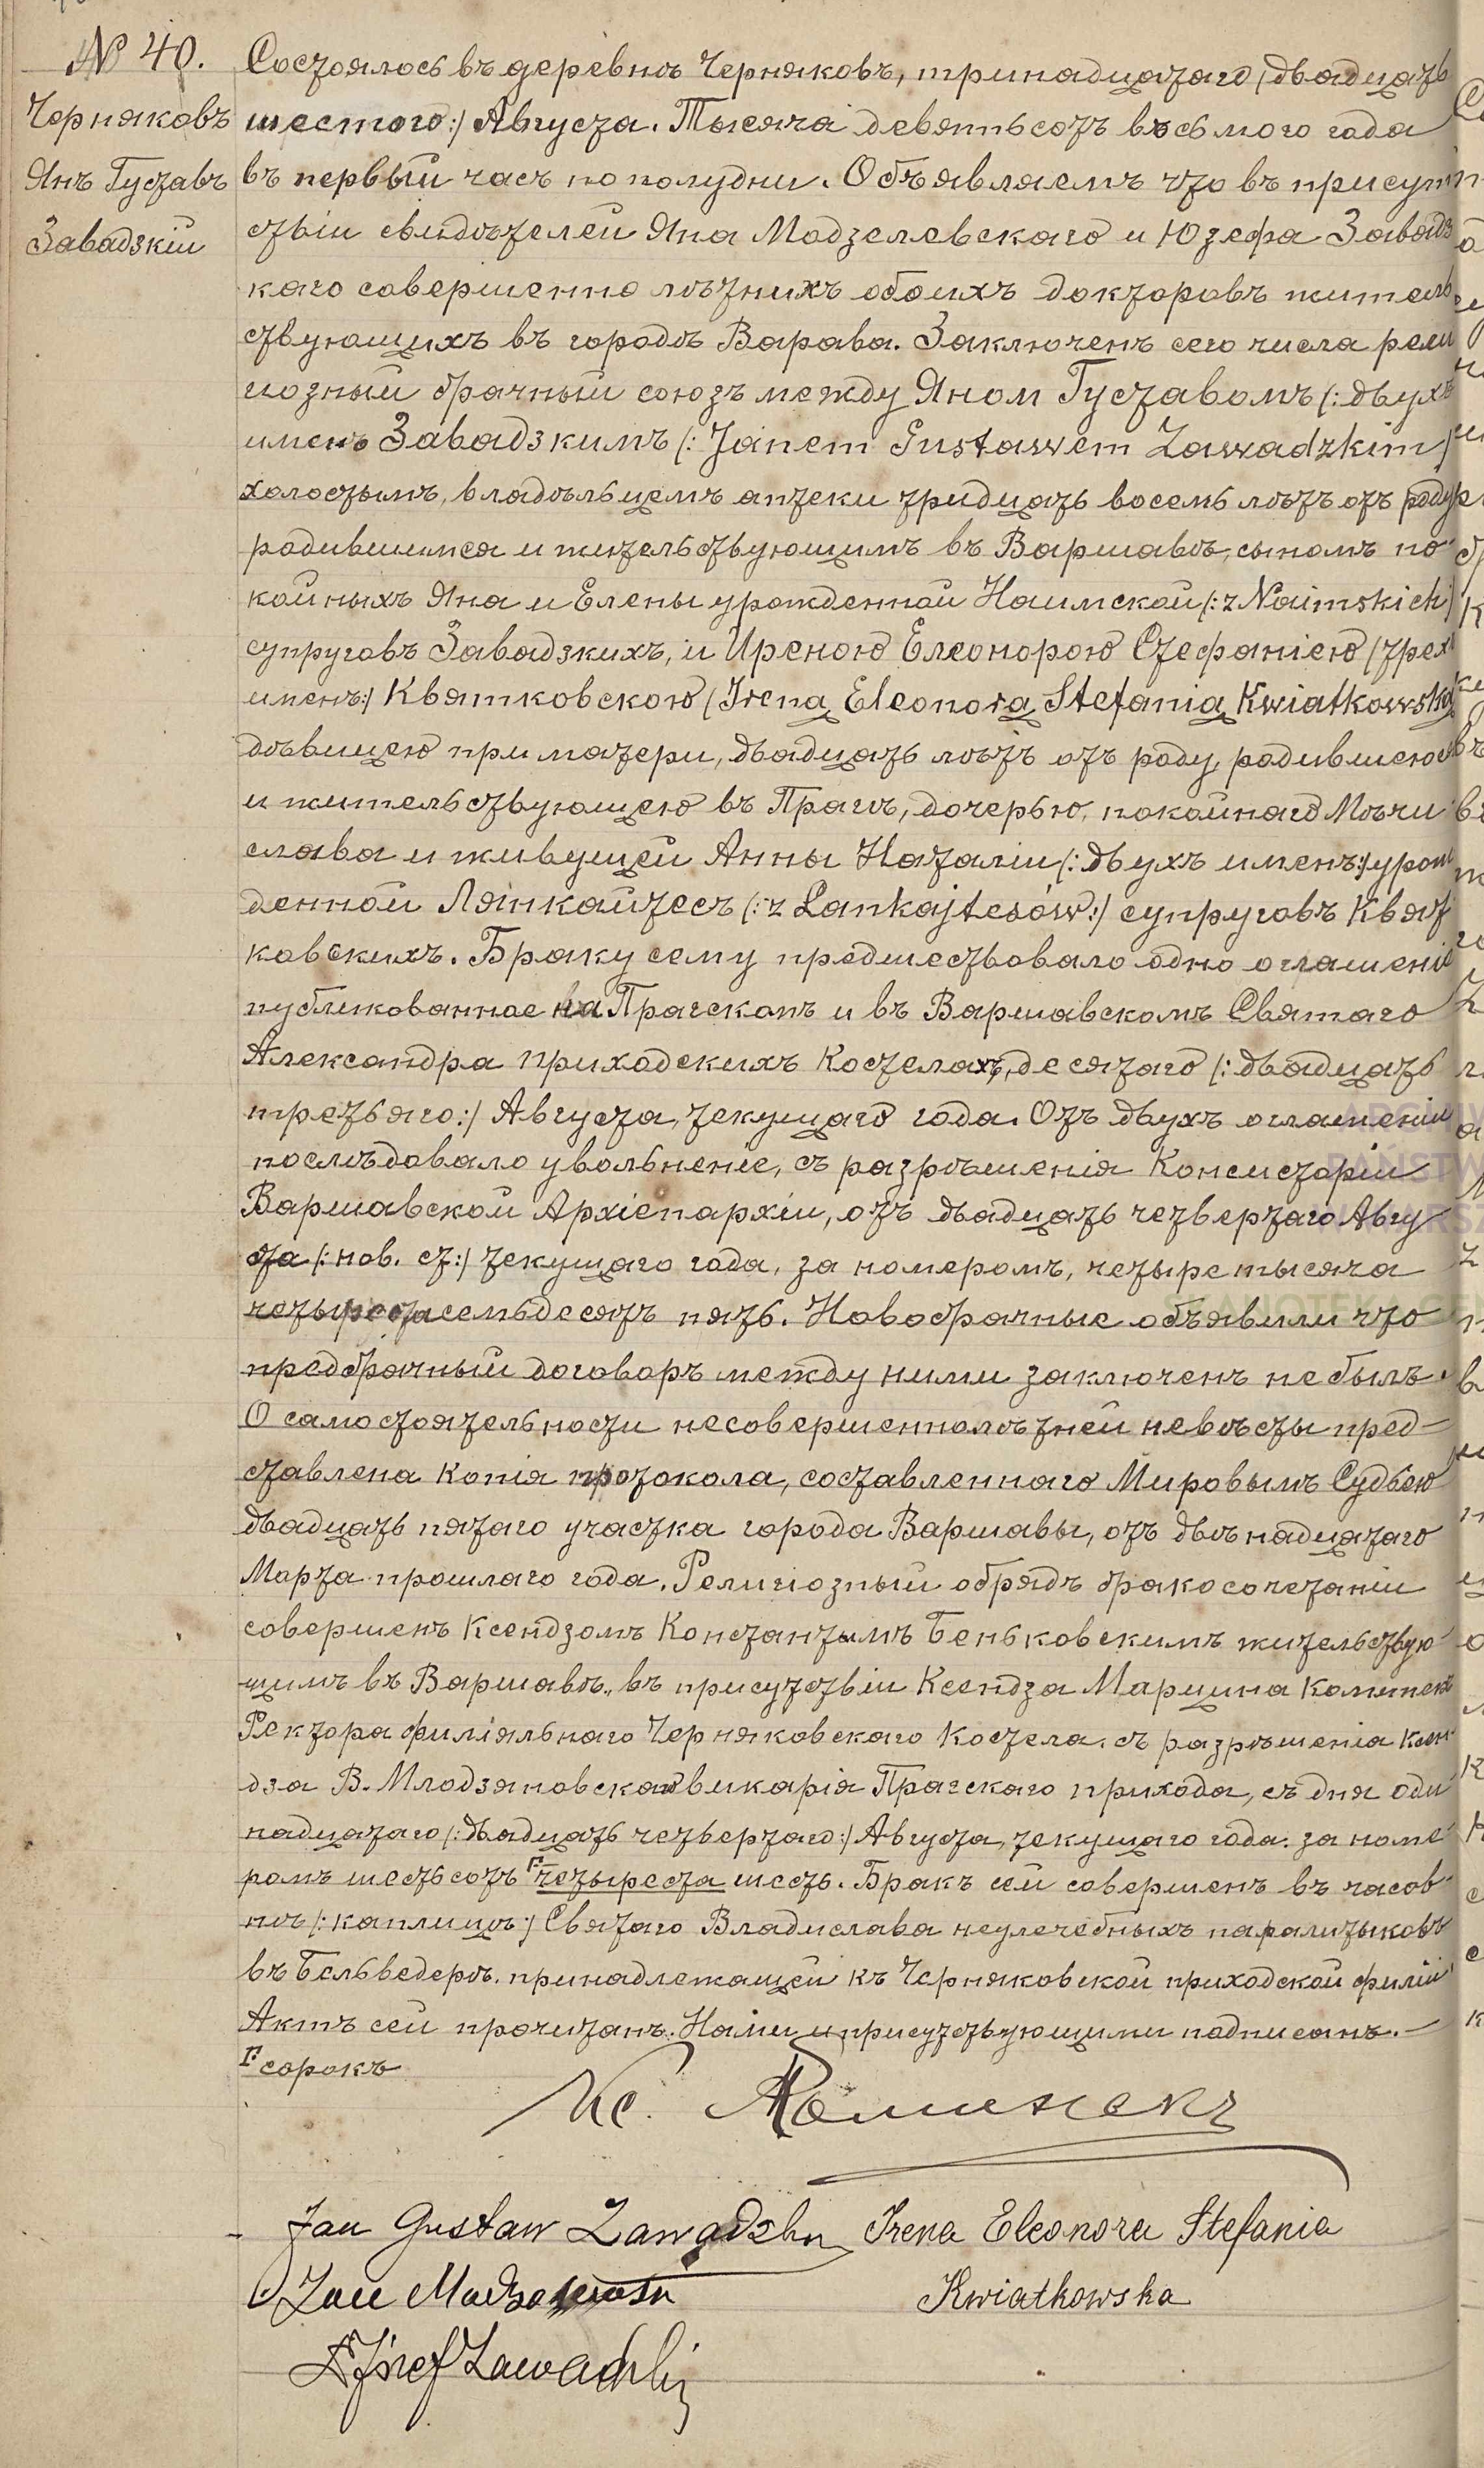 № 40.
Черняковъ
Янъ Густавъ
Завадзкій
Состоялось въ деревнѣ Черняковъ, тринадцатаго /двадцать
шестого:/ Августа. Тысяча девятьсотъ восьмого года
въ первый часъ пополудни. Объявляемъ что въ присут
ствіи свидѣтелей Яна Модзелевскаго и Юзефа Завадз
каго совершеннолѣтнихъ обоихъ докторовъ житель
ствующихъ въ городѣ Варава. Заключенъ сего числа рели
гіозный брачный союзъ между Яном Густавомъ (: двухъ
именъ Завадзкимъ (: Janem Gustawem Zawadzkim)
холостымъ, владѣльцемъ аптеки тридцать восемь лѣтъ отъ роду
родившимся и жительствующимъ въ Варшавѣ, сыномъ по
койныхъ Яна и Елены урожденной Наимской (: z Naimskich)
супруговъ Завадзкихъ, и Иреною Елеонорою Стефаніею (трехъ
именъ:) Квятковскою (Irena Eleonora Stefania Kwiatkowska
дѣвицею при матери, двадцать лѣтъ отъ роду, родившеюся
и жительствующею въ Прагѣ, дочерью, покойнаго Мѣчи
слава и живущей Анны Наталіи (: двухъ именъ:) урож
денной Лянкайтесъ (: z Lankajtesów:) супруговъ Квят
ковскихъ. Браку сему предшествовало одно оглашеніе
публикованное на Прагскомъ и въ Варшавскомъ Святаго
Александра приходскихъ Костелахъ, десятаго (: двадцать
третьяго:) Августа, текущаго года. Отъ двухъ оглашеній
послѣдовало увольненіе, съ разрѣшенія Консисторіи
Варшавской Архіепархіи, отъ двадцать четвертаго Авгу
ста (: нов. ст:) текущаго года, за номеромъ, четыре тысяча
четыреста семьдесятъ пять. Новобрачные объявили что
предбрачный договоръ между ними заключенъ не былъ.
О самостоятельности несовершеннолѣтней невѣсты пред-
ставлена копія протокола, составленнаго Мировымъ Судьею
двадцать пятаго участка города Варшавы, отъ двѣнадцатаго
Марта прошлаго года. Религіозный обрядъ бракосочетаніи
совершенъ Ксендзомъ Константымъ Беньковскимъ жительствую
щимъ въ Варшавѣ, въ присутствіи Ксендза Марцина Коминекъ
Ректора филіяльнаго Черняковскаго Костела, съ разрѣшенія Ксен
дза В. Млодзяновскаго викарія Прагскаго прихода, съ дня оди
надцатаго (: двадцать четвертаго:) Августа, текущаго года. за номе
ромъ шестьсотъ ┌четыреста шесть. Бракъ сей совершенъ въ часов
нѣ (: каплицѣ:) Святаго Владислава неулечебныхъ паралитыковъ
въ Бельведерѣ. принадлежащей къ Черняковской приходской филіи
Актъ сей прочитанъ. Нами и присутствующими подписанъ.-
┌ сорокъ
Кс. Коминекъ
Jan Gustaw Zawadzki Irena Eleonora Stefania
Jan Modzelewski Kwiatkowska
Józef Zawadzki